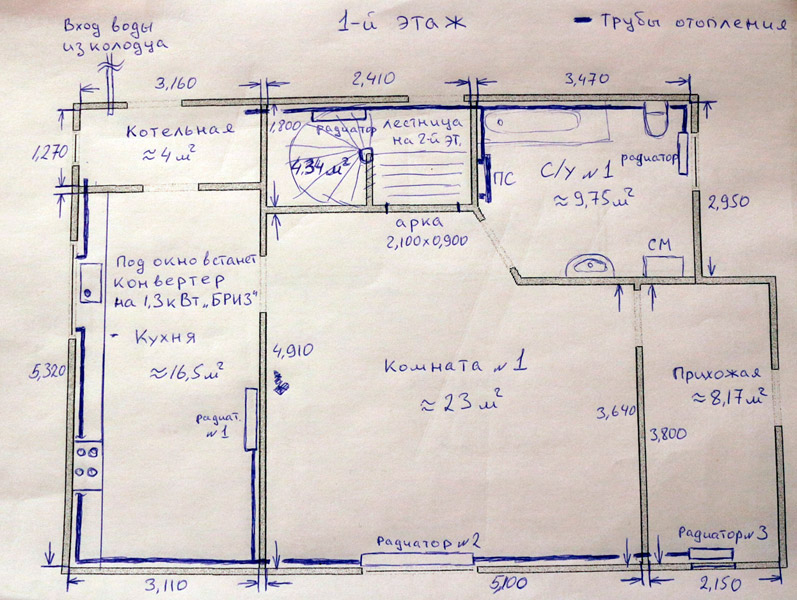 1-й этаж
Трубы отопления
Вход воды
из колодца
3,160
2,410
3,470
Котельная
≈4 м²
1,270
1,800
радиатор
лестница
на 2-й эт.
4.34 м²
ПС
С/У №1
≈9,75 м²
радиатор
2,950
арка
2,100х0,900
СМ
Под окно встанет
конвертер
на 1,3 кВт „БРИЗ"
- Кухня
≈16,5 м²
5,320
4,910
радиат.
№1
Комната №1
≈23 м²
3,640
Прихожая
≈8,17 м²
3,800
радиатор №2
радиатор №3
3,110
5,100
2,150